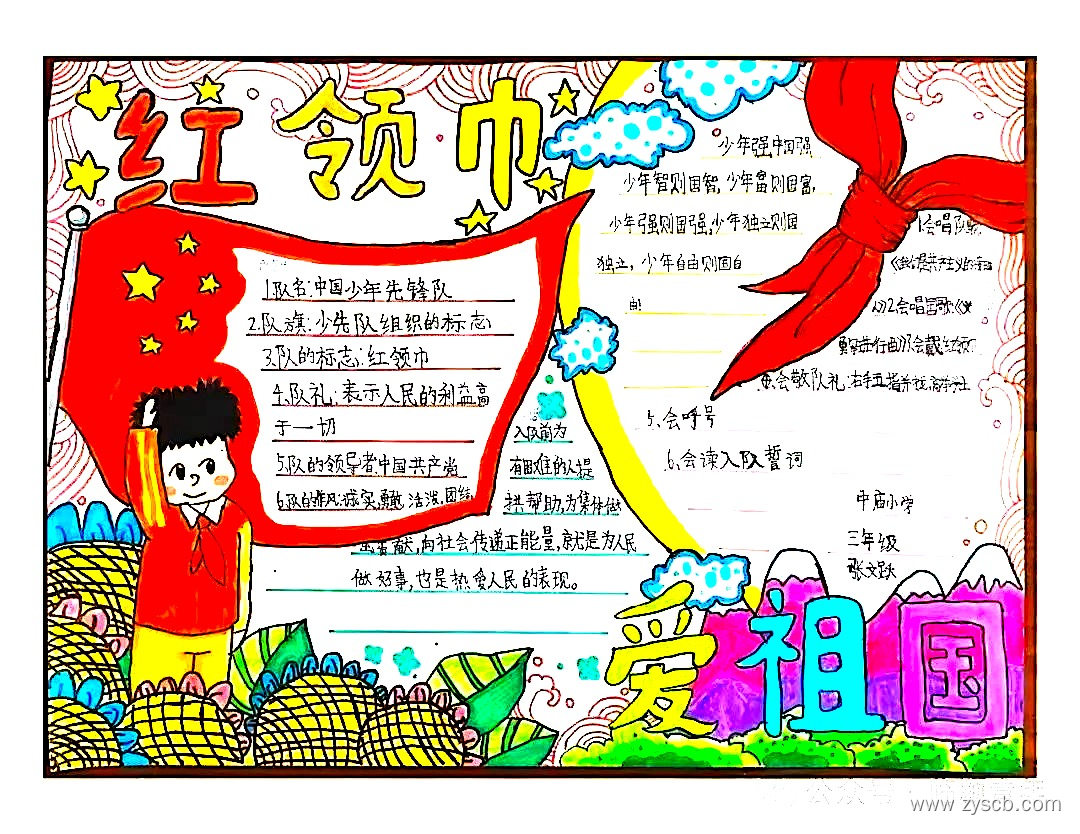 红领巾
1.队名:中国少年先锋队
2.队旗:少先队组织的标志
3.队的标志:红领巾
4.队礼:表示人民的利益高
于一切
5.队的领导者:中国共产党
6.队的作风:诚实,勇敢,活泼,团结
入队前为
有困难的人提
供帮助,为集体做
出贡献,向社会传递正能量,就是为人民
做好事,也是热爱人民的表现。
少年强中国强
少年智则国智,少年富则国富,
少年强则国强,少年独立则国
独立,少年自由则国自
由!
1会唱队歌
2会唱国歌
会戴红领
会敬队礼:右手五指并拢,高举头上
5.会呼号
6.会读入队誓词
中庙小学
三年级
张文跃
爱祖国
www.zyscb.com